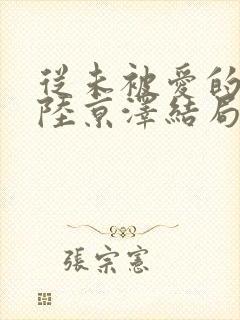 從未被愛的
陸京澤結局
張宗憲